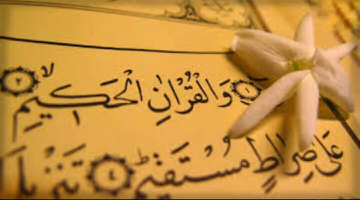 وَالْقُرْآنِ الْحَكِيمِ ۙ ٢
عَلَىٰ صِرَاطٍ مُسْتَقِيمٍ ؕ ٤ تَنْزِيلَ